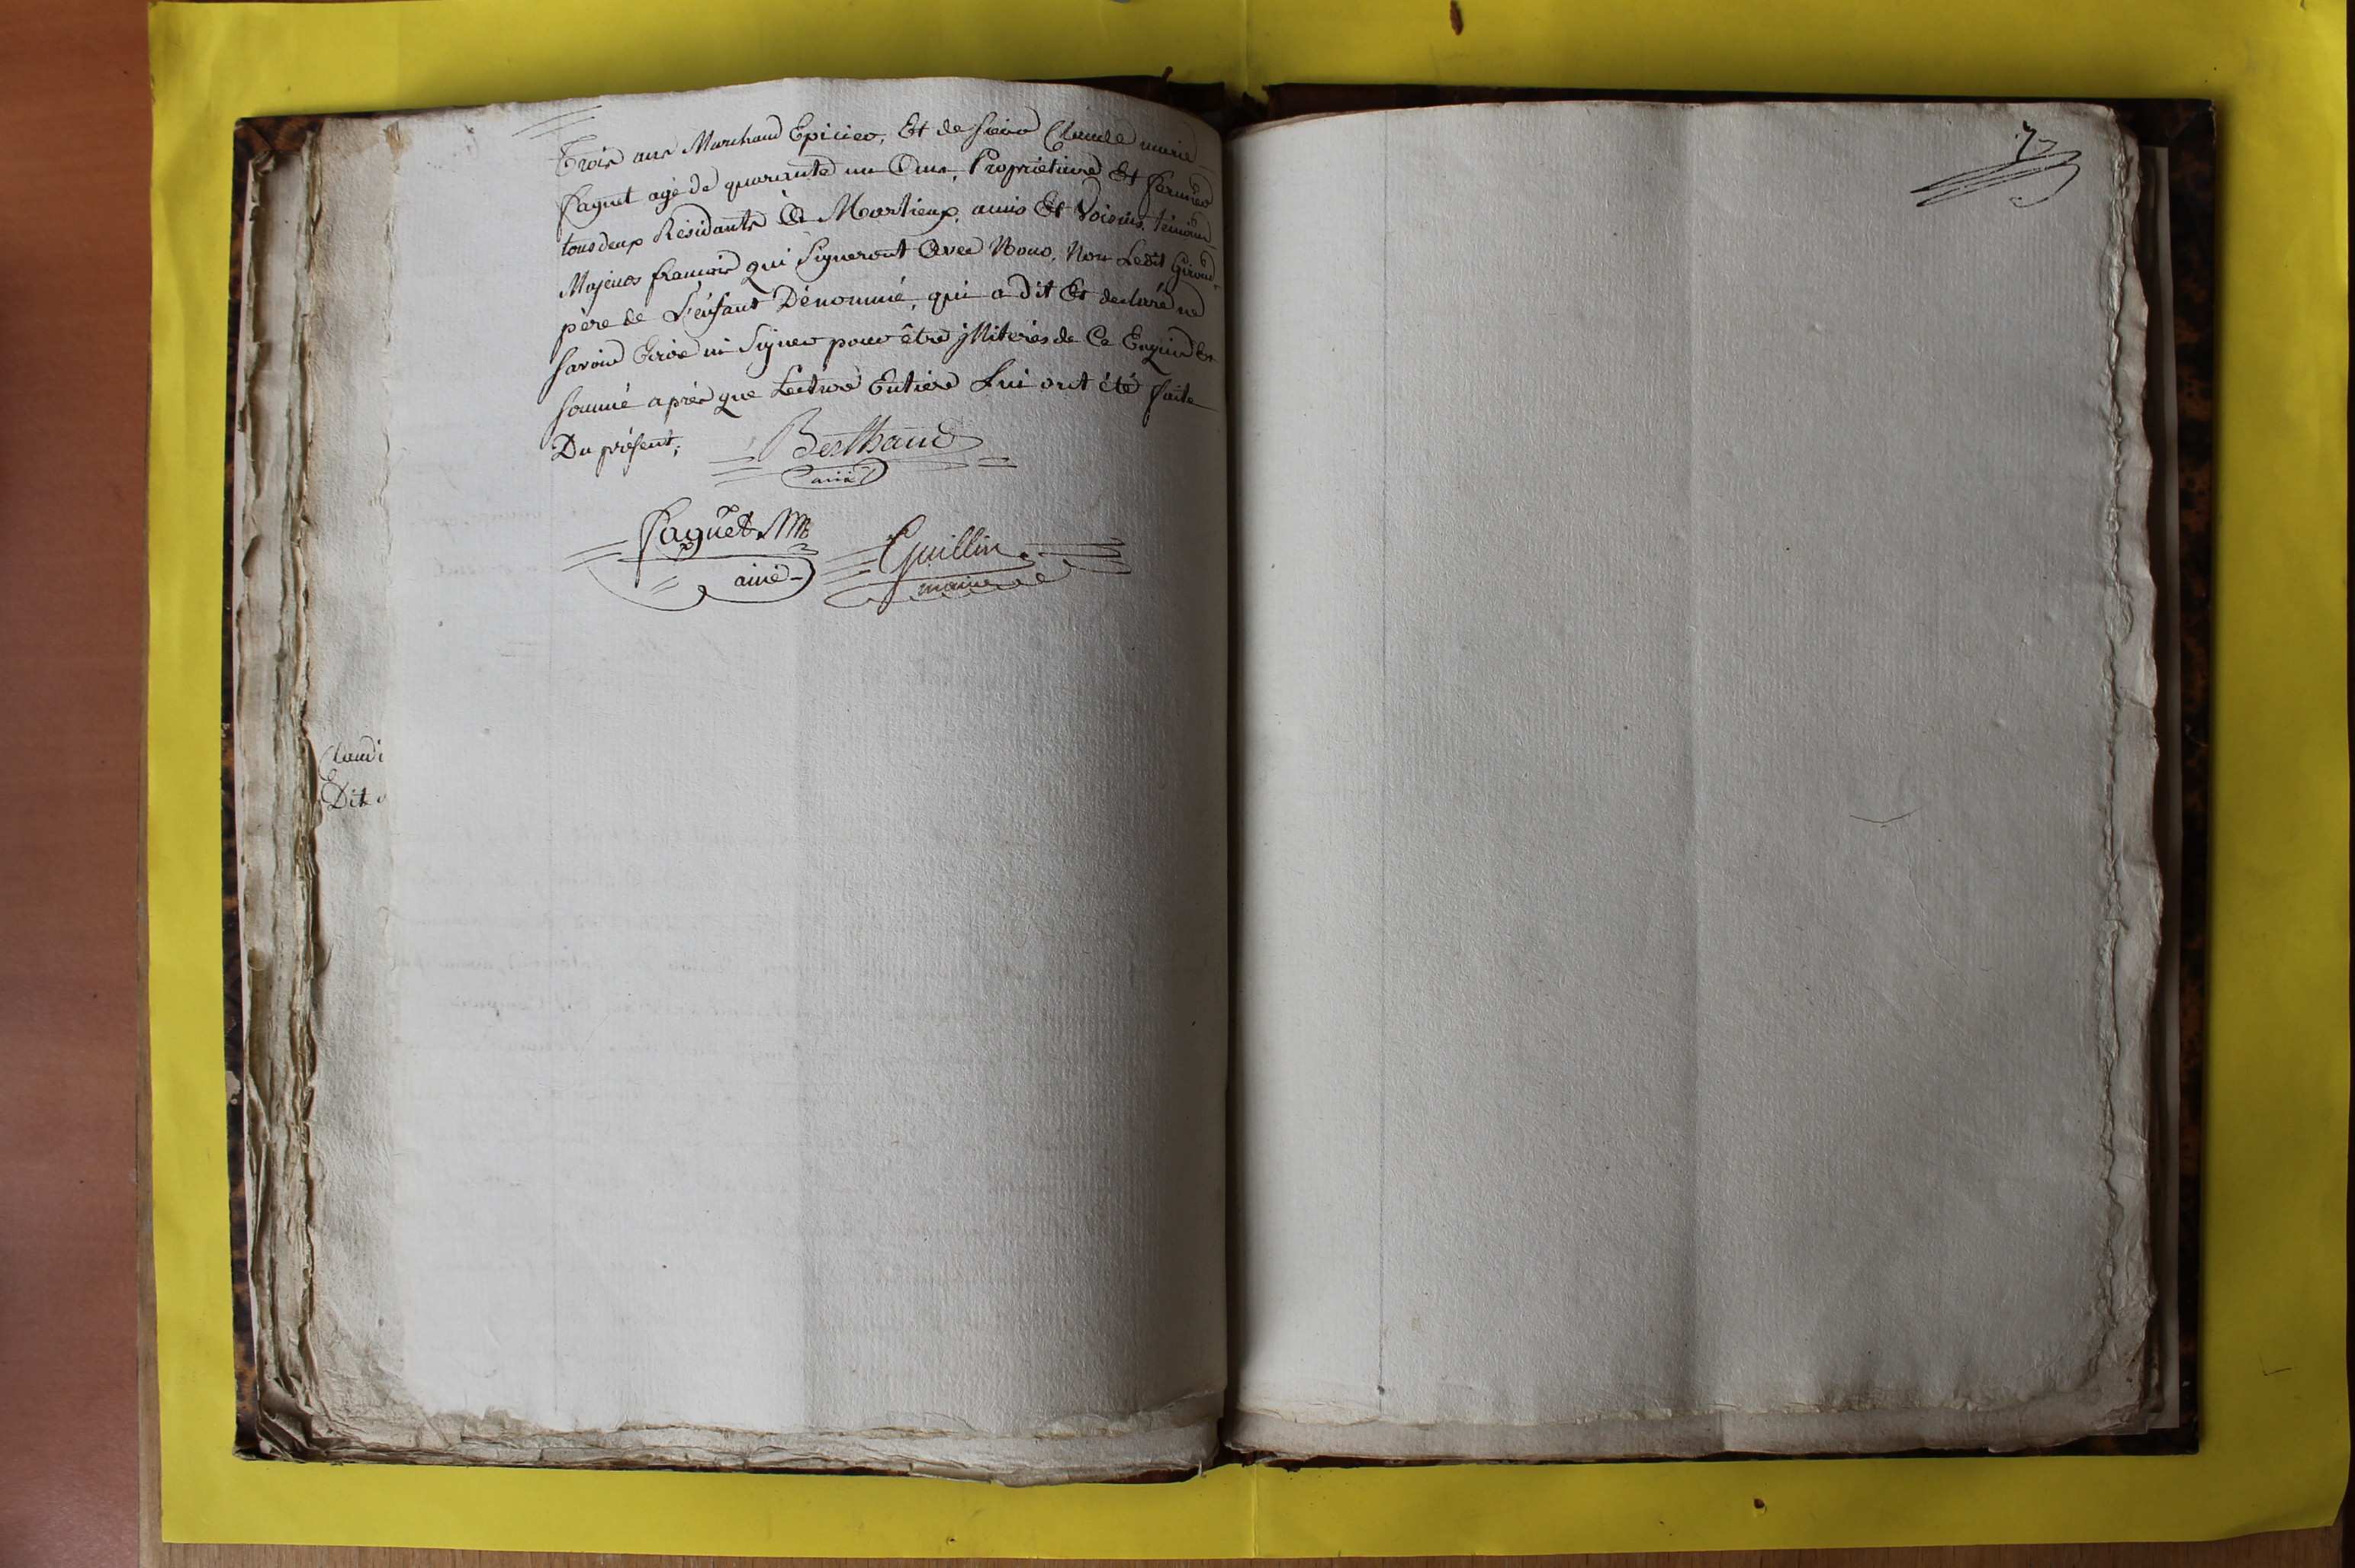 Trois ans Marchand Epicier, Et de sieur Claude marie
faguet agé de quarante un Ans, Propriétaire Et fermier
tous deux Résidants A Marlieux, amis Et Voisins, témoins
Majeurs français qui Signeront Avec Nous, Non Ledit Giroud
père de L'énfant Dénommé, qui a dit Et declaré ne
savoir Ecrire ni Signer pour être jlliterés de Ce Enquis Et
sommé après que Lecture Entiere Lui ont été faite
Du présent;
Berthaud
ainé
faguet
ainé
Guillin
maire
Claudi
Dite
7